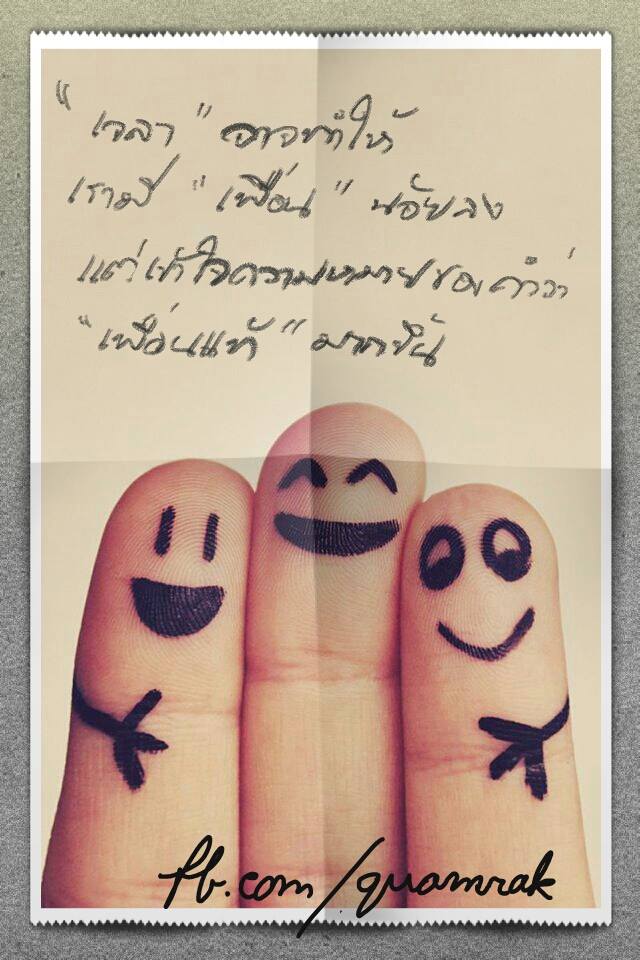 "เวลา" อาจทำให้
เรามี "เพื่อน" น้อยลง
แต่เข้าใจความหมายของคำว่า
"เพื่อนแท้" มากขึ้น
fb.com/quamrak